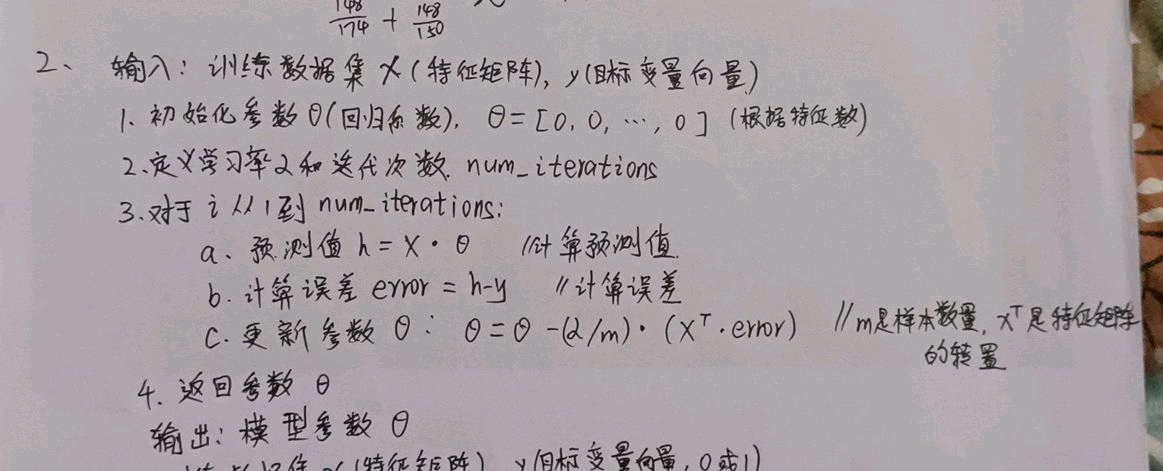 148/174 + 148/150
2、 输入：训练数据集 X（特征矩阵），y(目标变量向量)
1、初始化参数θ(回归系数)，θ=[0,0,…,0]（根据特征数）
2.定义学习率α和迭代次数. num_iterations
3.对于 i 从1到 num_iterations:
a、预测值 h = X·θ //计算预测值.
b.计算误差 error = h-y //计算误差
C.更新参数 θ: θ=θ-(α/m)·(X^T·error) //m是样本数量，X^T是特征矩阵
的转置
4.返回参数 θ
输出：模型参数 θ
(特征矩阵)，y(目标变量向量，0或1)